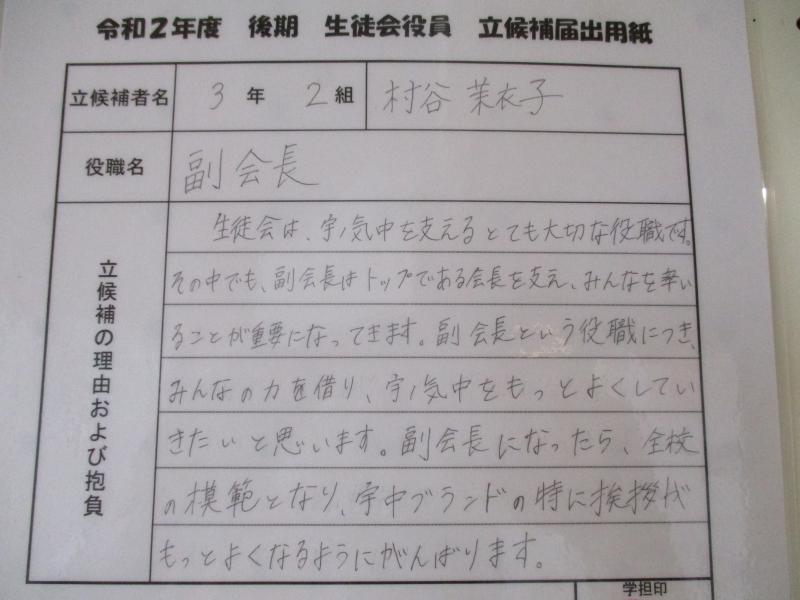 令和2年度 後期 生徒会役員 立候補届出用紙
立候補者名 3年 2組 村谷 茉衣子
役職名 副会長
立候補の理由および抱負
生徒会は、宇ノ気中を支えるとても大切な役職です。
その中でも、副会長はトップである会長を支え、みんなを率い
ることが重要になってきます。副会長という役職につき、
みんなの力を借り、宇ノ気中をもっとよくしてい
きたいと思います。副会長になったら、全校
の模範となり、宇中ブランドの特に挨拶が
もっとよくなるようにがんばります。
学担印